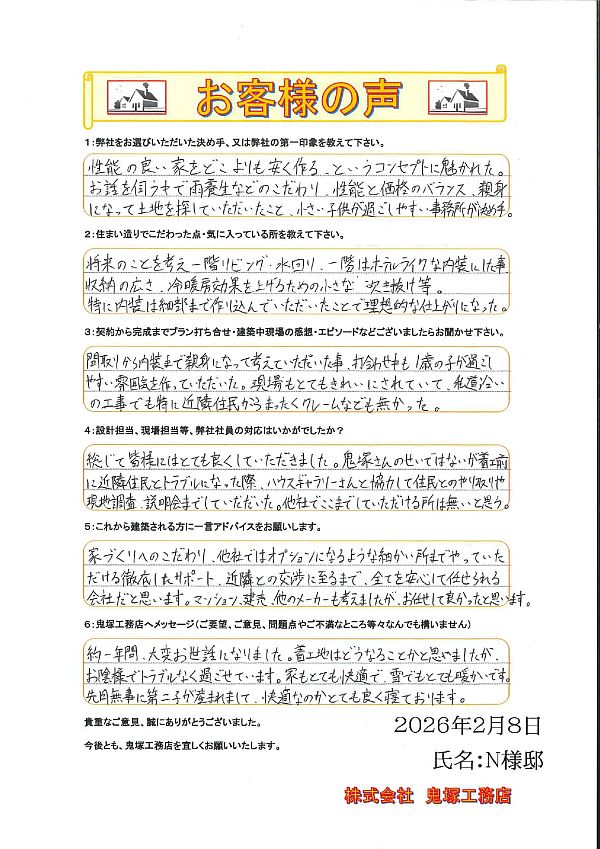 お客様の声
1:弊社をお選びいただいた決め手、又は弊社の第一印象を教えて下さい。
性能の良い家をどこよりも安く作る、というコンセプトに魅かれた。
お話を伺う中で雨養生などのこだわり、性能と価格のバランス、親身
になって土地を探していただいたこと、小さい子供が過ごしやすい事務所が決め手。
2:住まい造りでこだわった点・気に入っている所を教えて下さい。
将来のことを考え一階リビング・水回り、一階はホテルライクな内装にした事
収納の広さ、冷暖房効果を上げるための小さな吹き抜け等。
特に内装は細部まで作り込んでいただいたことで理想的な仕上がりになった。
3:契約から完成までプラン打ち合せ・建築中現場の感想・エピソードなどございましたらお聞かせ下さい。
間取りから内装まで親身になって考えていただいた事、打合わせ中も1歳の子が過ごし
やすい雰囲気を作っていただいた。現場もとてもきれいにされていて、私道沿い
の工事でも特に近隣住民からまったくクレームなども無かった。
4:設計担当、現場担当等、弊社社員の対応はいかがでしたか?
総じて皆様にはとても良くしていただきました。鬼塚さんのせいではないが着工前
に近隣住民とトラブルになった際、ハウスギャラリーさんと協力して住民とのやり取りや
現地調査、説明会までしていただいた。他社でここまでしていただける所は無いと思う。
5:これから建築される方に一言アドバイスをお願いします。
家づくりへのこだわり、他社ではオプションになるような細かい所までやっていた
だける徹底したサポート、近隣との交渉に至るまで、全てを安心して任せられる
会社だと思います。マンション、建売、他のメーカーも考えましたが、お任せして良かったと思います。
6:鬼塚工務店へメッセージ(ご要望、ご意見、問題点やご不満なところ等々なんでも構いません)
約一年間、大変お世話になりました。着工地はどうなることかと思いましたが、
お陰様でトラブルなく過ごせています。家もとても快適で、雪でもとても暖かいです。
先月無事に第二子が産まれまして、快適なのかとても良く寝ております。
貴重なご意見、誠にありがとうございました。
2026年2月8日
今後とも、鬼塚工務店を宜しくお願いいたします。
氏名:N様邸
株式会社 鬼塚工務店